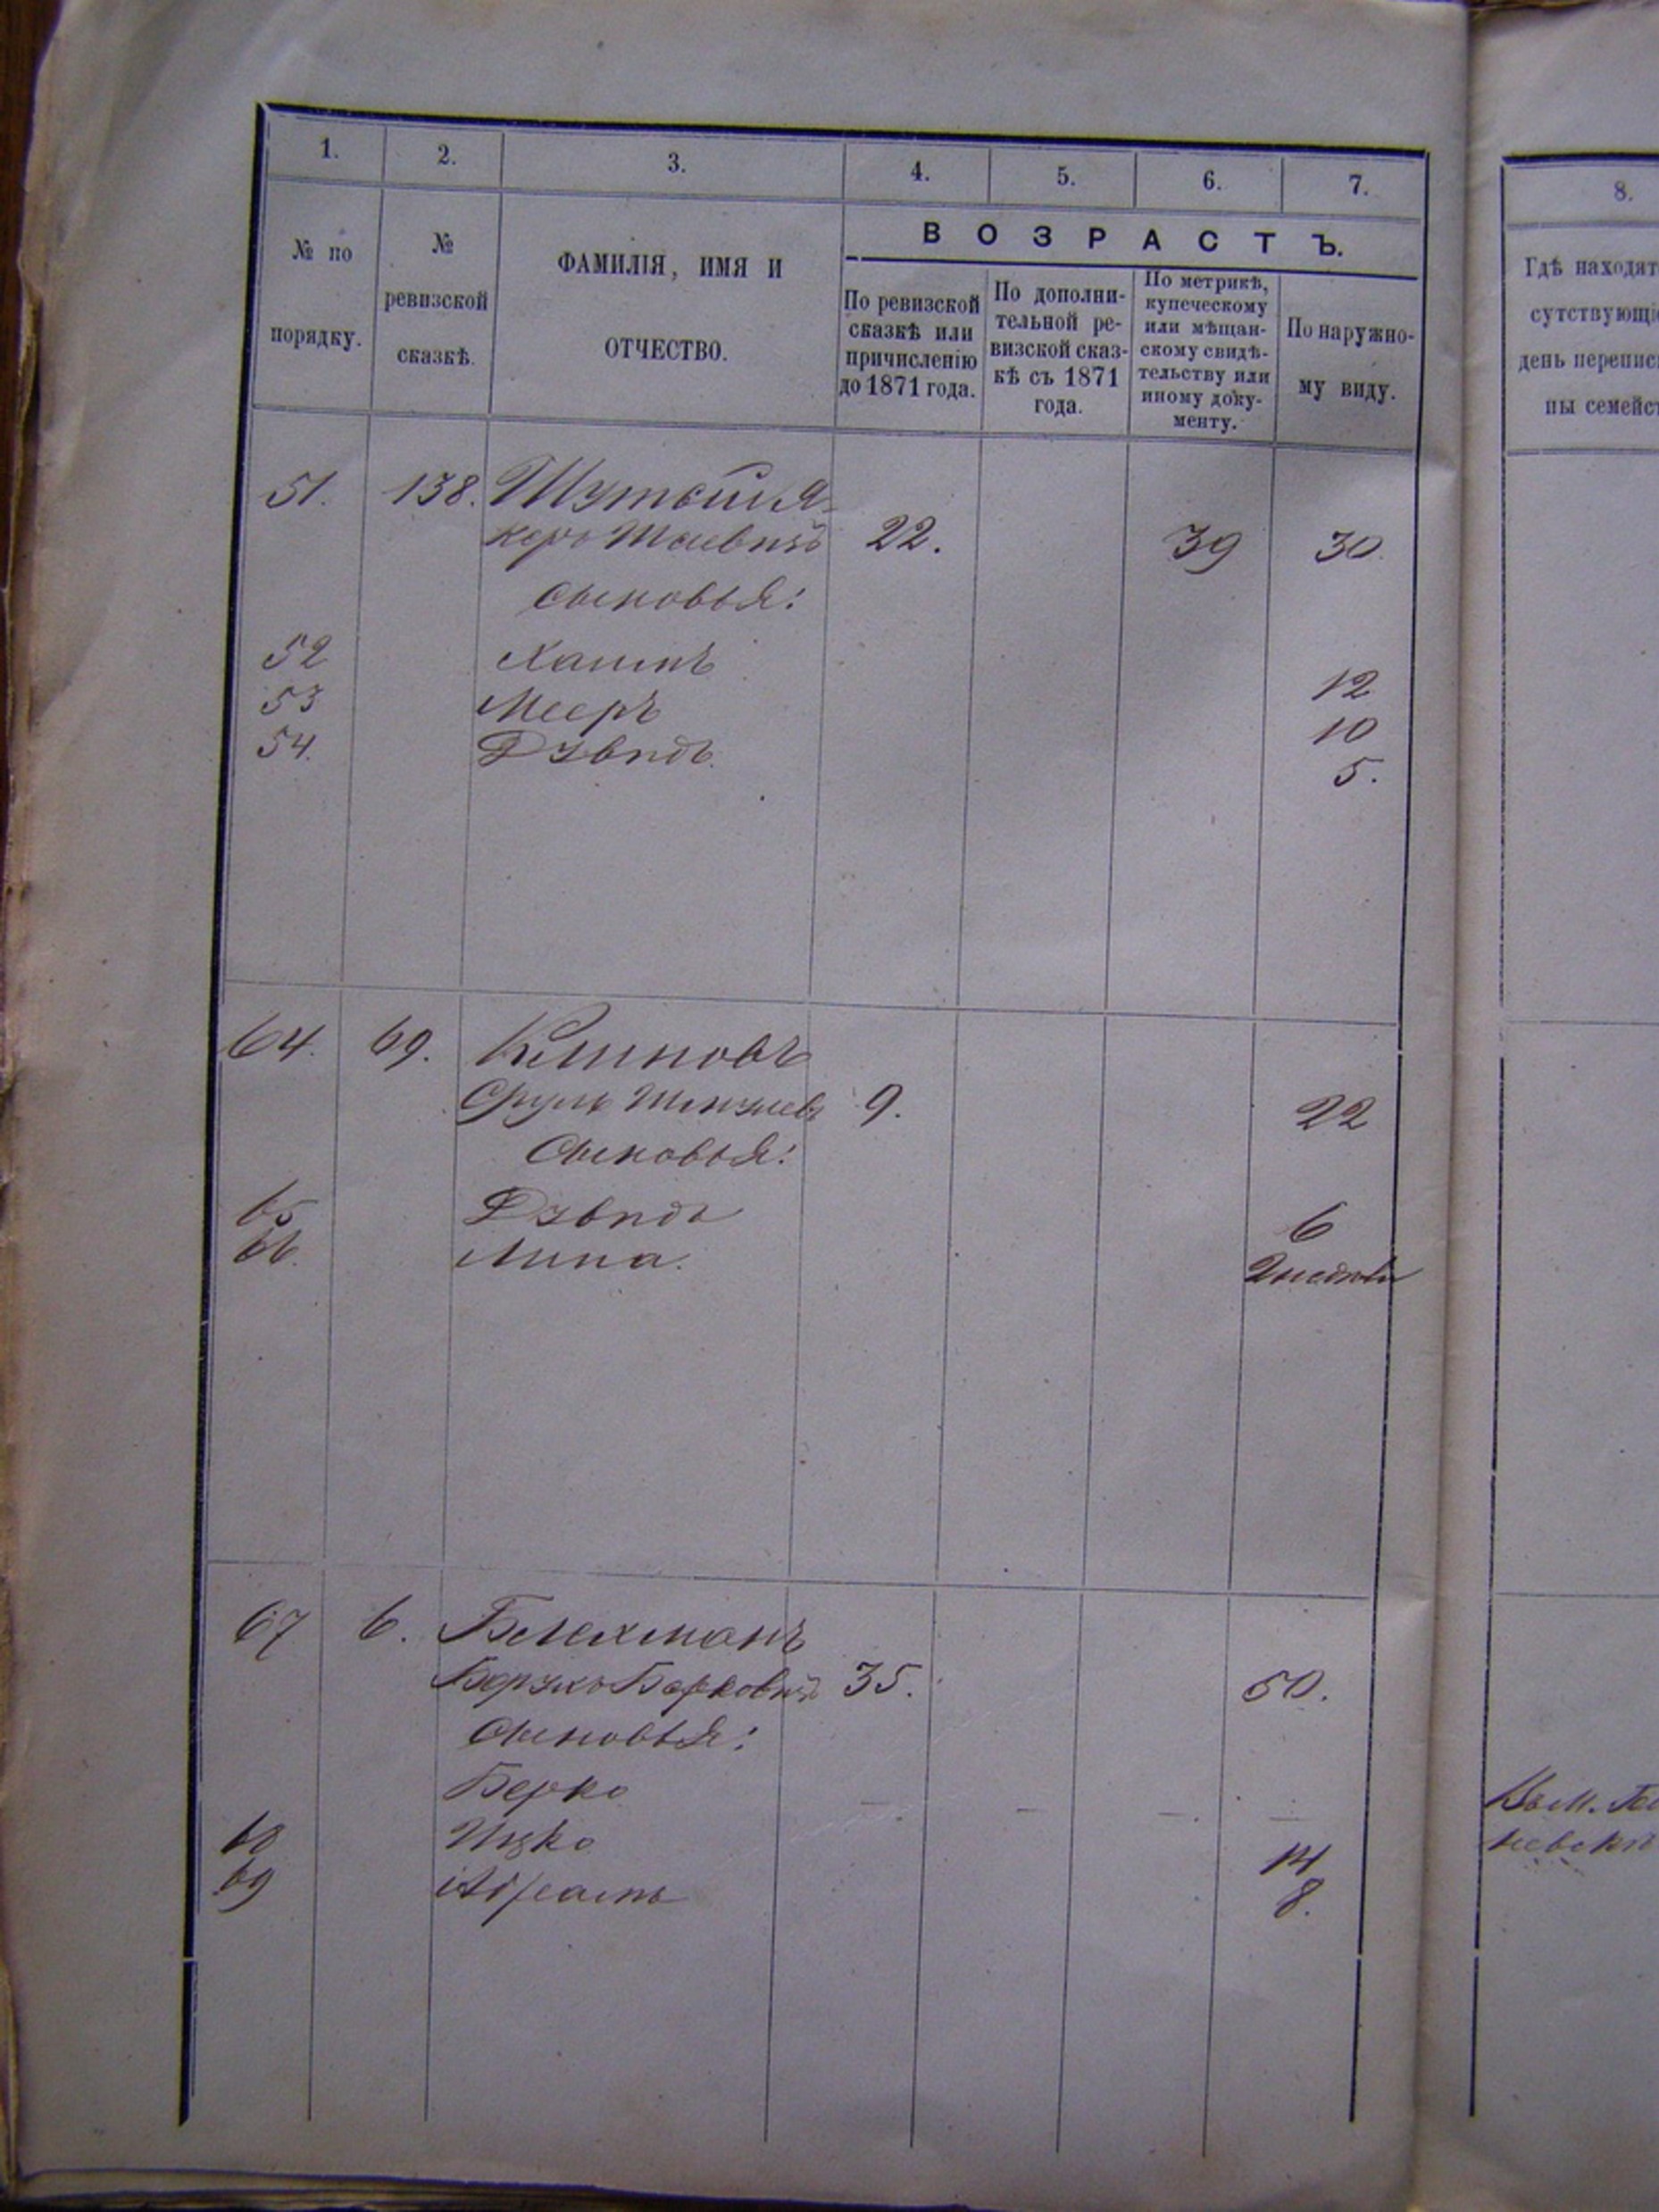 1. 2. 3. 4. 5. 6. 7.
№ по порядку.
№ ревизской сказкѣ.
ФАМИЛІЯ, ИМЯ И ОТЧЕСТВО.
ВОЗРАСТЪ.
По ревизской сказкѣ или причисленію до 1871 года.
По дополнительной ревизской сказкѣ съ 1871 года.
По метрикѣ, купеческому или мѣщанскому свидѣтельству или иному документу.
По наружному виду.
51. 138.
22. 39 30.
сыновья:
52 Хаимъ 12
53 Мееръ 10
54. Дувидъ. 5.
64. 69. Клиновъ
Сруль 9. 22
Сыновья:
65 Дувидъ 6
66. Липа.
67 6. Блехманъ
Борковичъ 35. 50.
Сыновья:
Берко — — — —
68 Ицко 14
69 Абрамъ 8.
8.
Гдѣ находят
сутствующі
день перепис
ны семейст